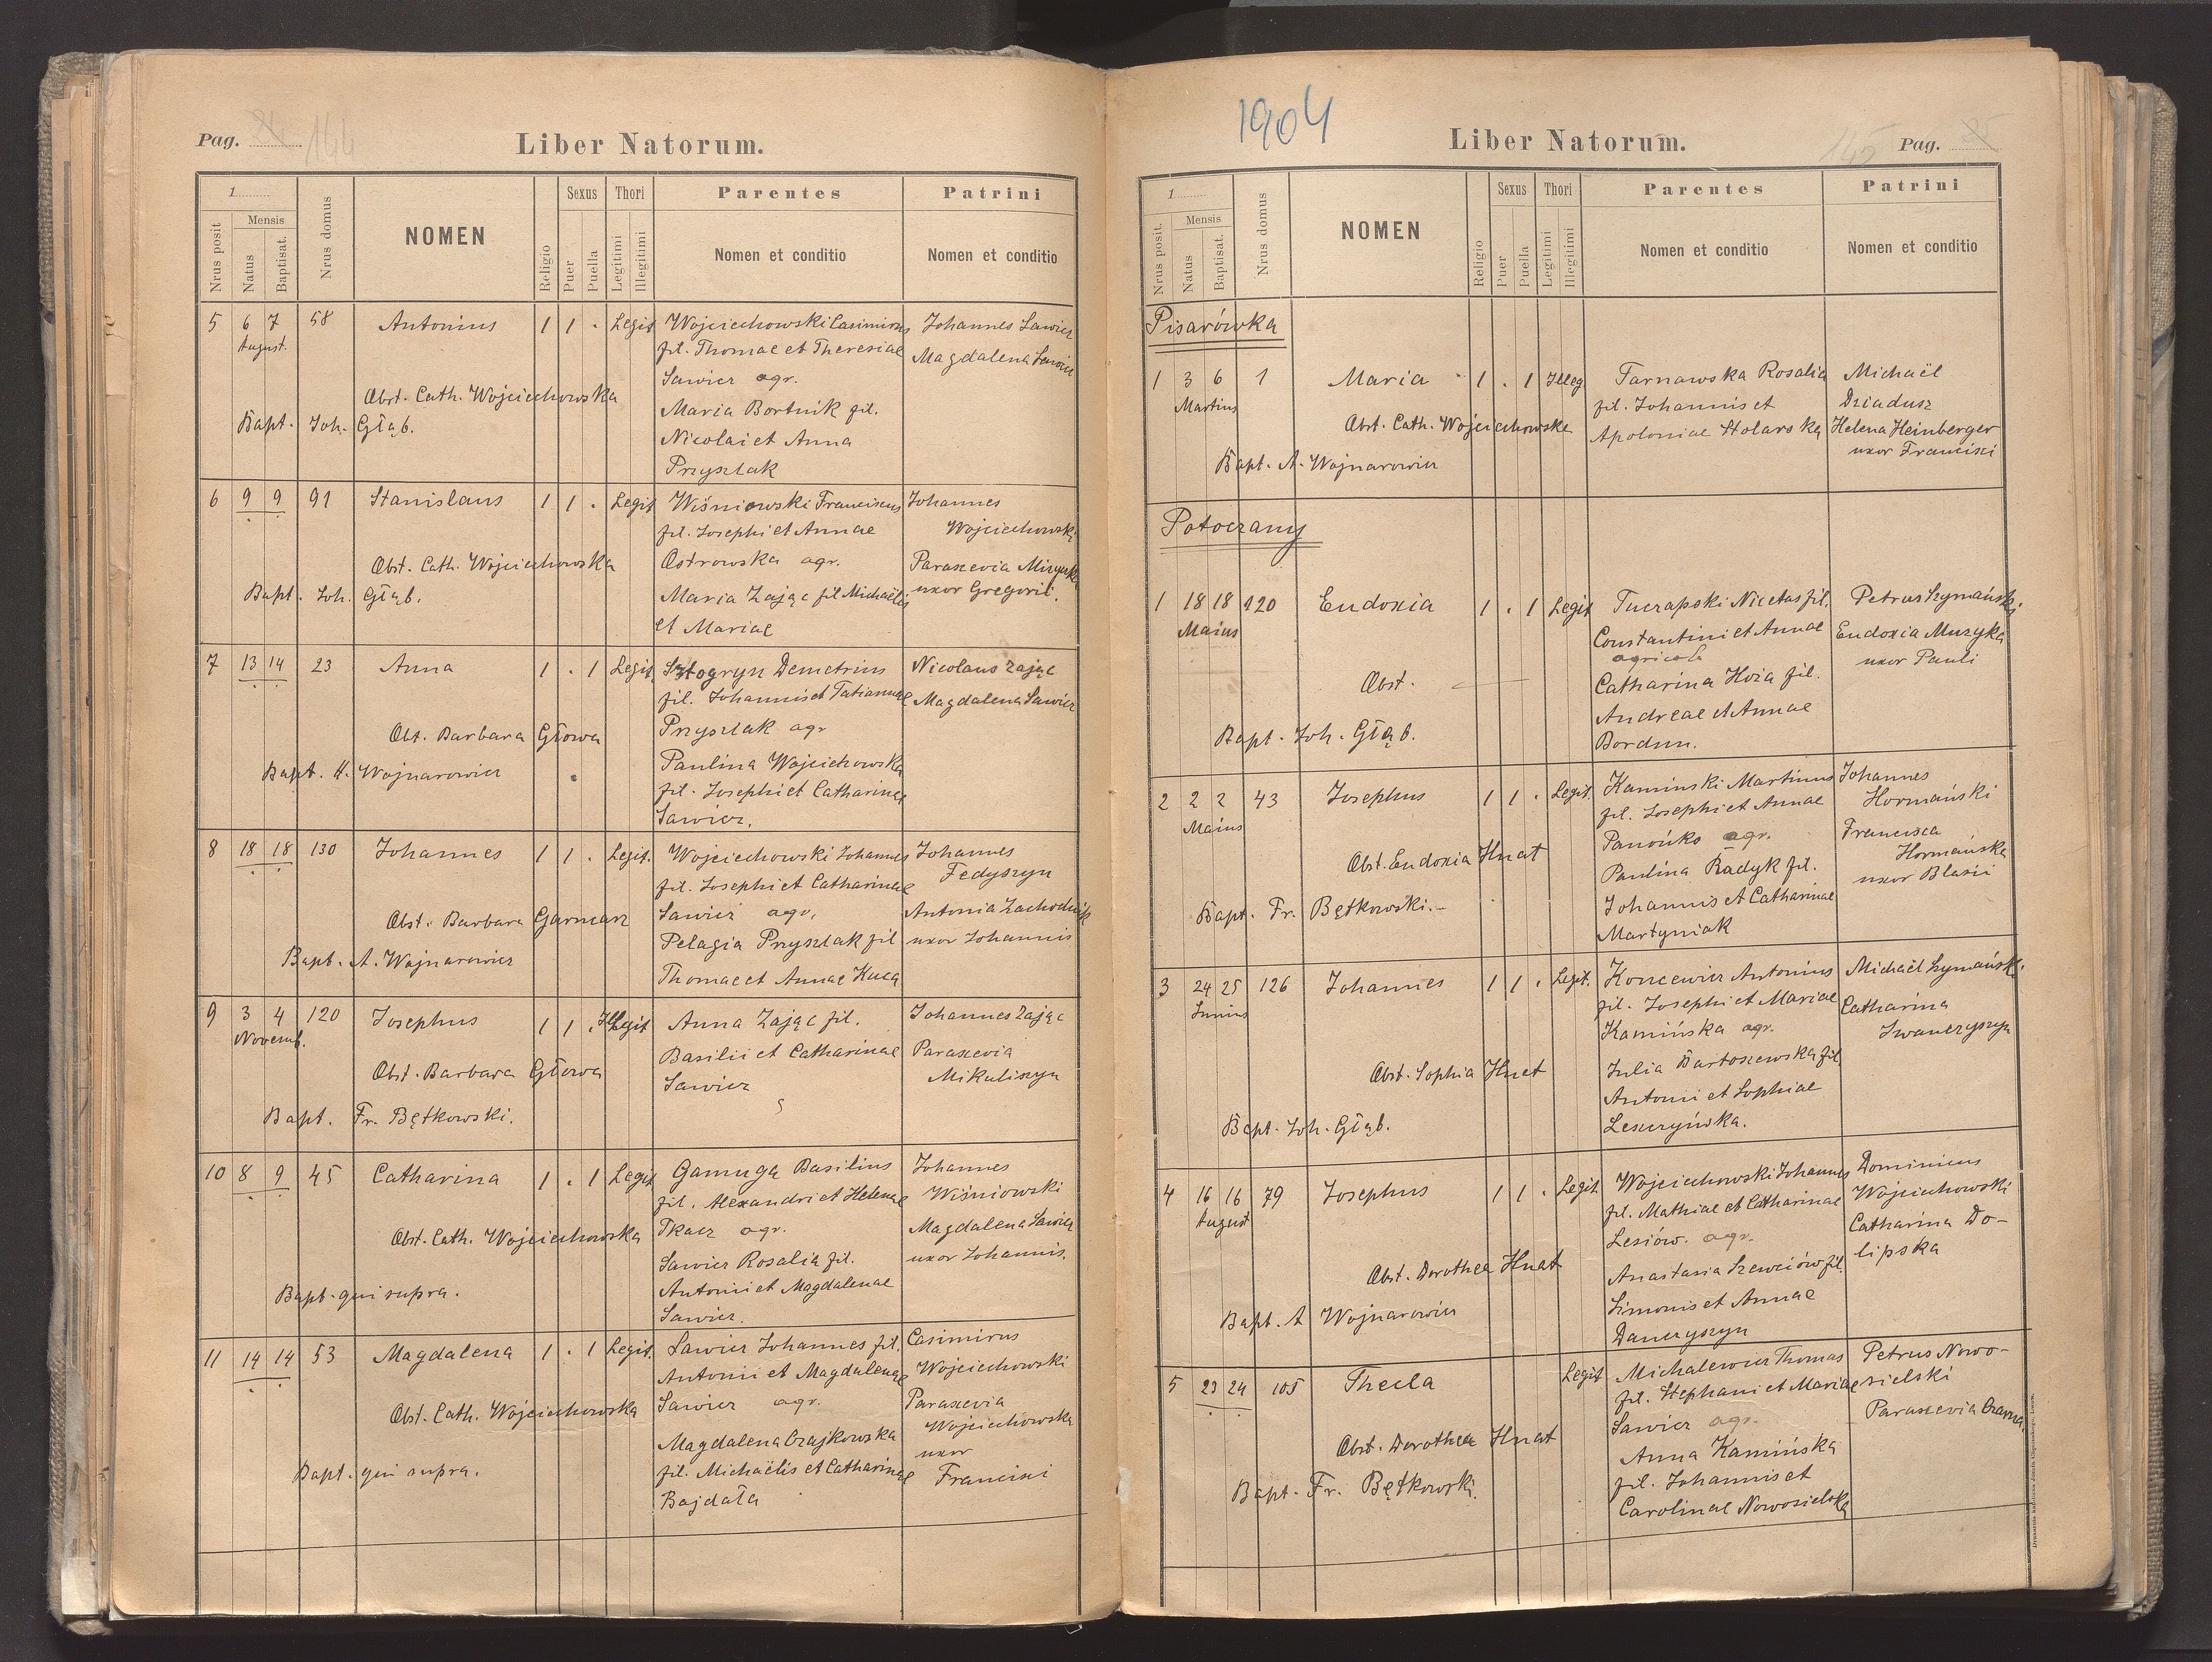 Pag. 24 144
Liber Natorum.
1
Nrus posit
Mensis
Natus
Baptisat.
Nrus domus
NOMEN
Religio
Sexus
Puer
Puella
Thori
Legitimi
Illegitimi
Parentes
Nomen et conditio
Patrini
Nomen et conditio
5 6 7 58 Antonius 1 1 . Legit Wojciechowski Casimirus Johannes Sawicz
August. fil. Thomae et Theresiae Magdalena Sawicz
Sawicz agr.
Obst. Cath. Wojciechowska Maria Bortnik fil.
Bapt. Joh. Głąb. Nicolai et Anna
Przyszlak
6 9 9 91 Stanislaus 1 1 . Legit Wiśniowski Franciscus Johannes
fil. Josephi et Annae Wojciechowski
Obst. Cath. Wojciechowska Ostrowska agr. Paraxevia
Bapt. Joh. Głąb. Maria Zając fil Michaëlis uxor Gregorii.
et Mariae
7 13 14 23 Anna 1 . 1 Legit Sztogryn Demetrius Nicolaus Zając
fil. Johannis et Tatiannae Magdalena Sawicz
Obt. Barbara Głowa Przyszlak agr
Bapt. A. Wojnarowicz Paulina Wojciechowska
fil. Josephi et Catharinae
Sawicz.
8 18 18 130 Johannes 1 1 . Legit. Wojciechowski Johannes Johannes
fil. Josephi et Catharinae Fedyszyn
Obst. Barbara Garncarz Sawicz agr, Antonia Zachodnik
Bapt. A. Wojnarowicz Pelagia Przyszlak fil uxor Johannis
Thomae et Annae Kuca
9 3 4 120 Josephus 1 1 . Illegit Anna Zając fil. Johannes Zając
Novemb. Basilii et Catharinae Paraxevia
Obst. Barbara Głowa Sawicz Mikuliszyn
Bapt. Fr. Bętkowski.
10 8 9 45 Catharina 1 . 1 Legit Gamuga Basilius Johannes
fil. Alexandri et Helenae Wiśniowski
Obst. Cath. Wojciechowska Tkacz agr. Magdalena Sawicz
Sawicz Rosalia fil. uxor Johannis.
Bapt. qui supra. Antonii et Magdalenae
Sawicz.
11 14 14 53 Magdalena 1 . 1 Legit. Sawicz Johannes fil. Casimirus
Antonii et Magdalenae Wojciechowski
Obst. Cath. Wojciechowska Sawicz agr. Paraxevia
Magdalena Czajkowska Wojciechowska
Bapt. qui supra. fil. Michaëlis et Catharinae uxor
Bajdała Francisci
1904
Liber Natorum.
145 Pag. 25
1
Nrus posit.
Mensis
Natus
Baptisat.
Nrus domus
NOMEN
Religio
Sexus
Puer
Puella
Thori
Legitimi
Illegitimi
Parentes
Nomen et conditio
Patrini
Nomen et conditio
Pisarówka
1 3 6 1 Maria 1 . 1 Illeg Tarnawska Rosalia Michaël
Martius fil. Johannis et Dziadusz
Obst. Cath. Wojciechowska Apoloniae Stolarska Helena Heinberger
Bapt. A. Wojnarowicz uxor Francisci
Potoczany
1 18 18 120 Eudoxia 1 . 1 Legit Tuczapski Nicetas fil. Petrus Szymański
Maius Constantini et Annae Eudoxia Muzyka
agricola uxor Pauli
Obst. — Catharina Hoza fil.
Andreae et Annae
Bapt. Joh. Głąb. Bordun.
2 2 2 43 Josephus 1 1 . Legit. Kamiński Martinus Johannes
Maius fil. Josephi et Annae Hormański
Panońko agr. Francisca
Obst. Eudoxia Hnat Paulina Radyk fil. Hormańska
Bapt. Fr. Bętkowski.- Johannis et Catharinae uxor Blasii
Martyniak
3 24 25 126 Johannes 1 1 . Legit. Koncewicz Antonius Michaël Szymański
Junius fil. Josephi et Mariae Catharina
Kamińska agr. Iwanczyszyn
Obst. Sophia Hnat Julia Bartoszewska fil
Antonii et Sophiae
Bapt. Joh. Głąb. Leszczyńska.
4 16 16 79 Josephus 1 1 . Legit Wojciechowski Johannes Dominicus
August fil. Mathiae et Catharinae Wojciechowski
Lesiów. agr. Catharina Do-
Obst. Dorothea Hnat Anastasia Szewciów fil. lipska
Bapt. A Wojnarowicz Simonis et Annae
Danczyszyn
5 23 24 105 Thecla Legit Michalewicz Thomas Petrus Nowo-
fil. Stephani et Mariae sielski
Obst. Dorothea Hnat Sawicz agr. Paraxevia Czarna
Anna Kamińska
Bapt. Fr. Bętkowski. fil. Johannis et
Carolinae Nowosielska